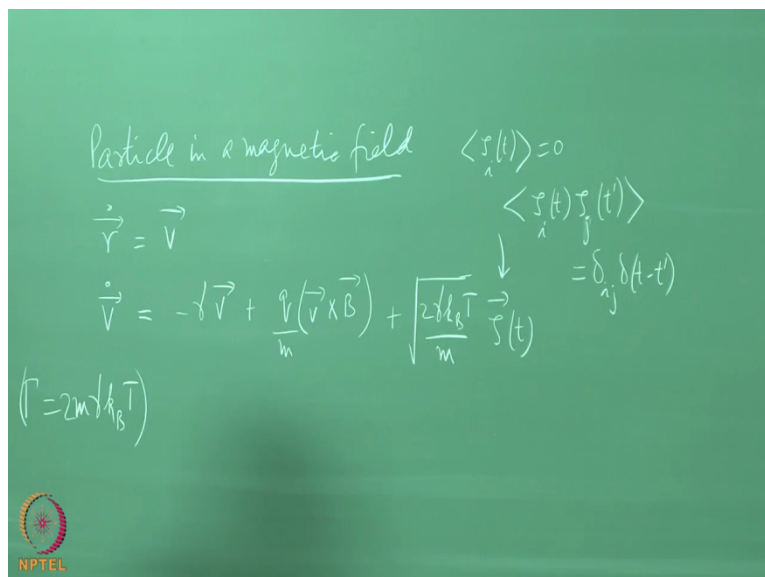 Particle in a magnetic field
⟨ζ_i(t)⟩ = 0
⟨ζ_i(t) ζ_j(t')⟩
= δ_ij δ(t-t')
\dot{\vec{r}} = \vec{v}
\dot{\vec{v}} = -γ\vec{v} + q/m (\vec{v} × \vec{B}) + √(2γk_BT/m) \vec{ζ}(t)
(Γ = 2mγk_BT)
NPTEL